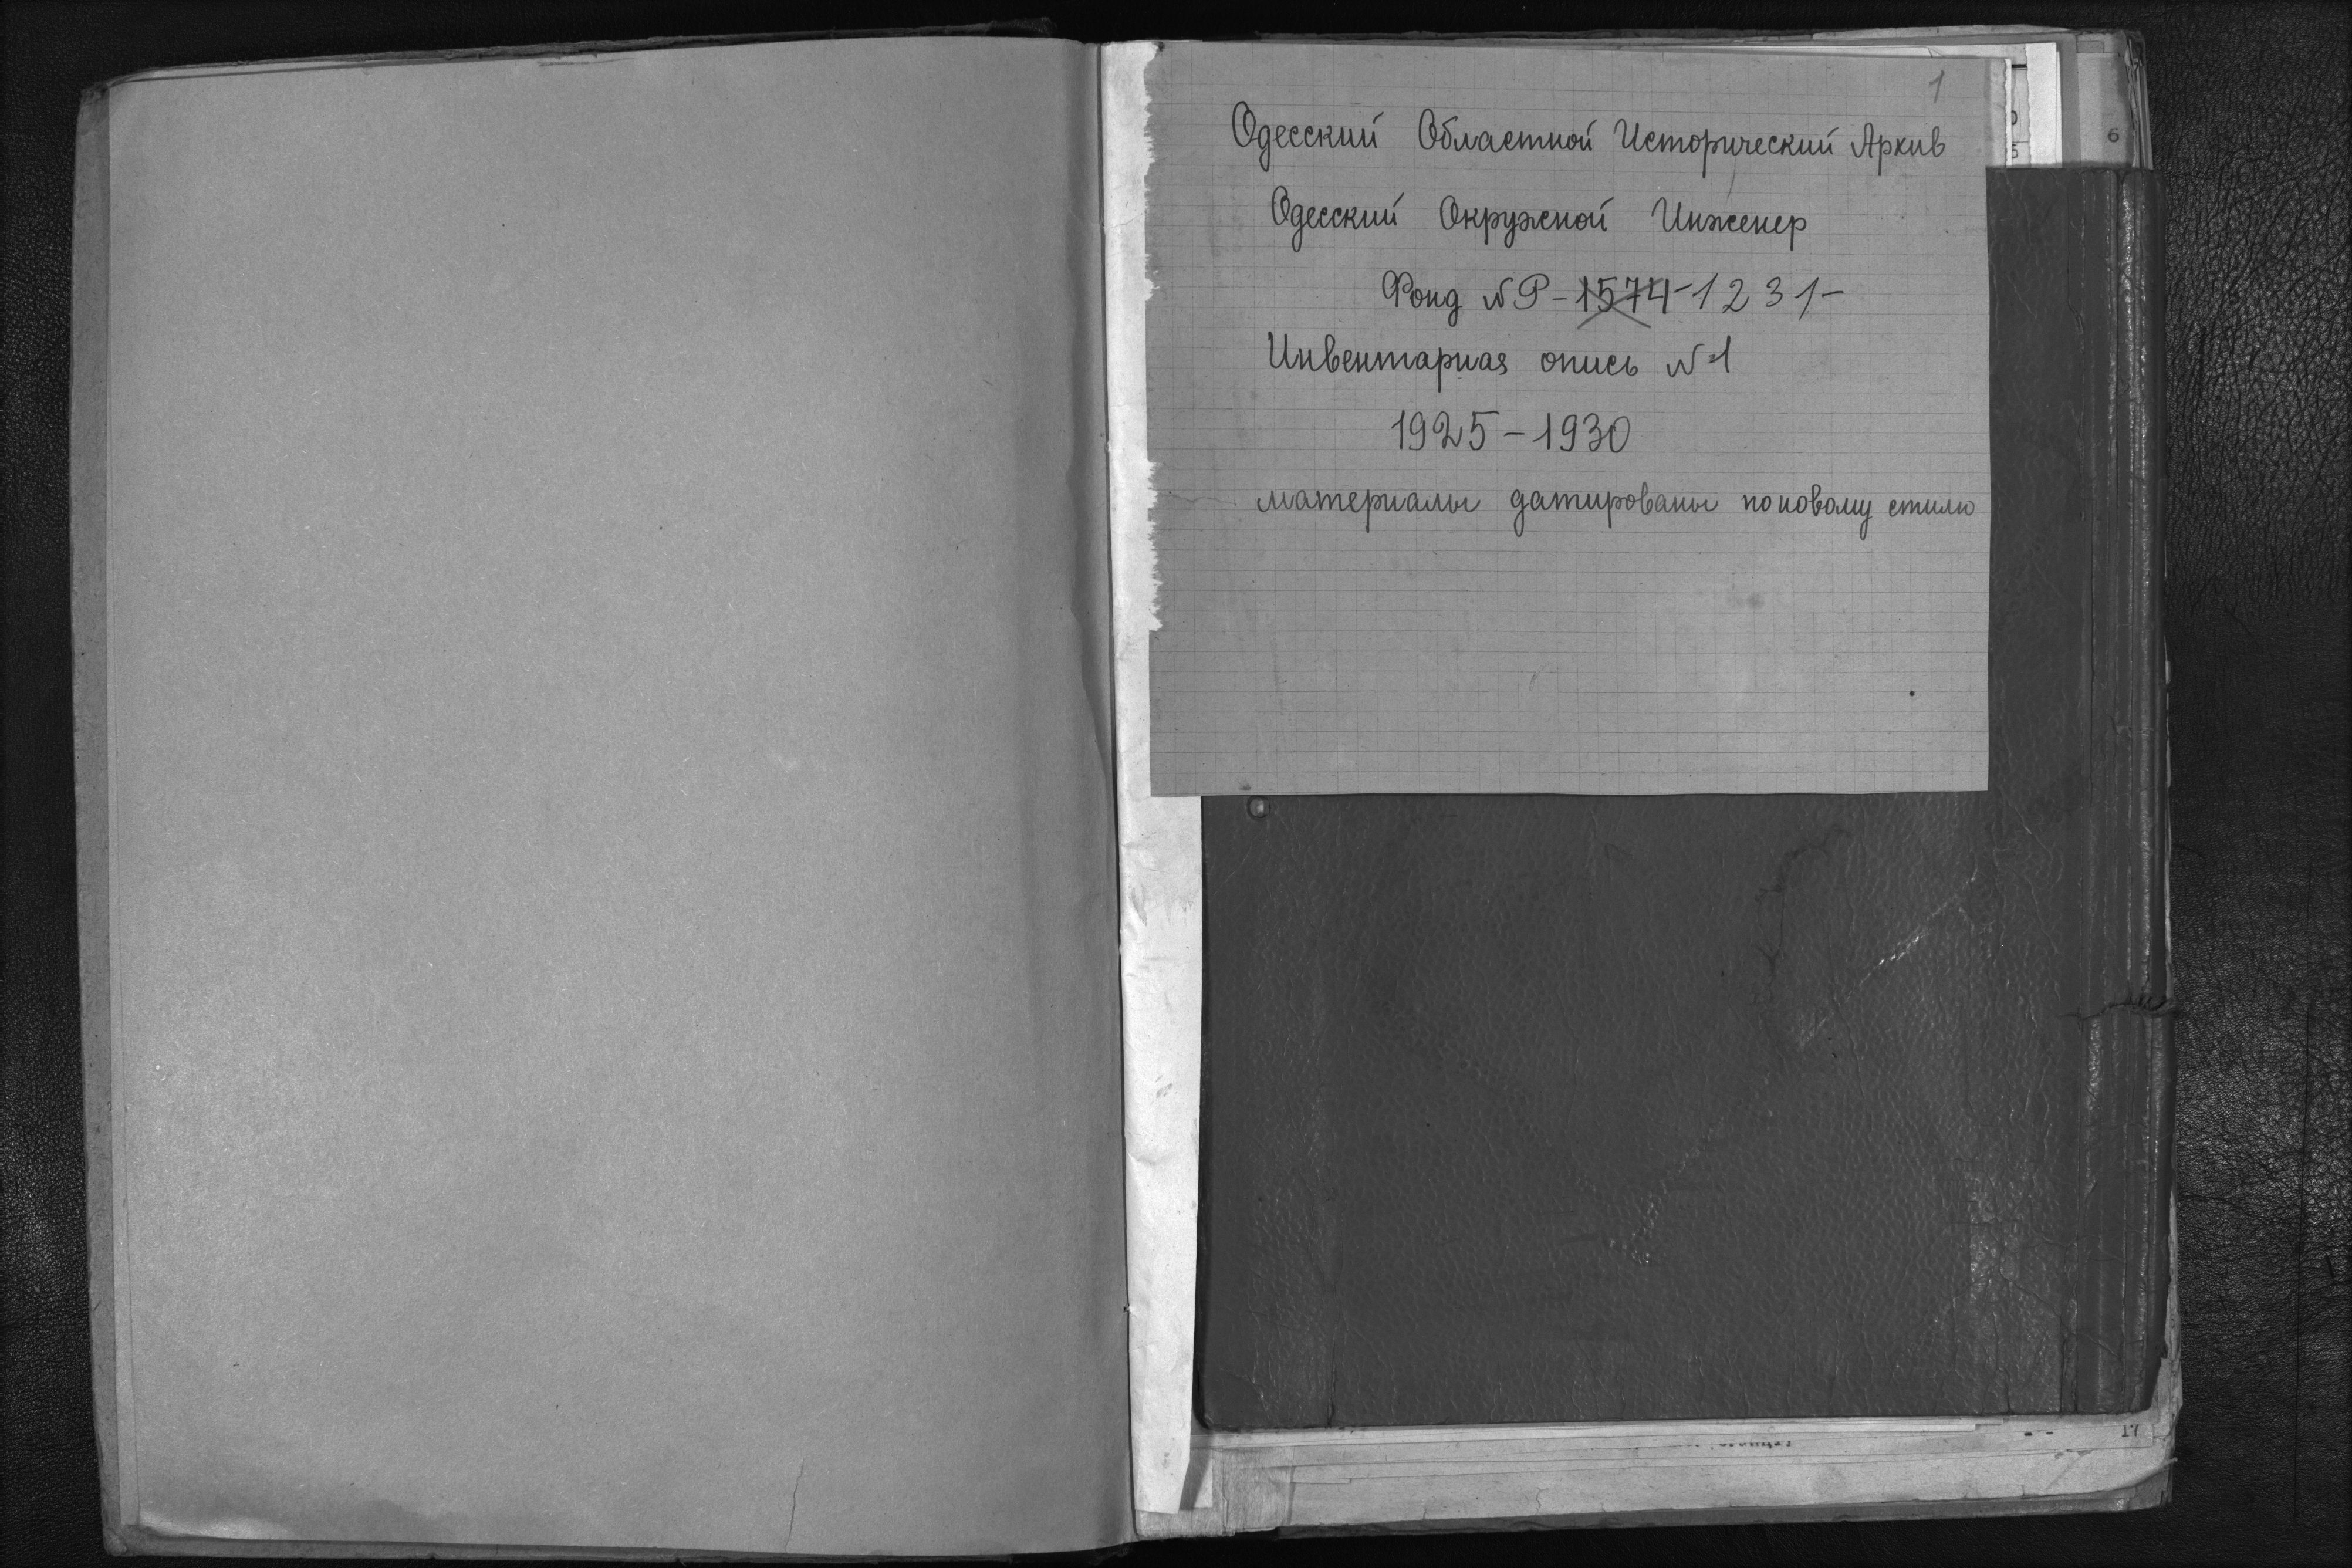 1
Одесский Областной Исторический Архив
Одесский Окружной Инженер
Фонд № Р-1574-1231-
Инвентарная опись №1
1925-1930
материалы датированы по новому стилю
6
17